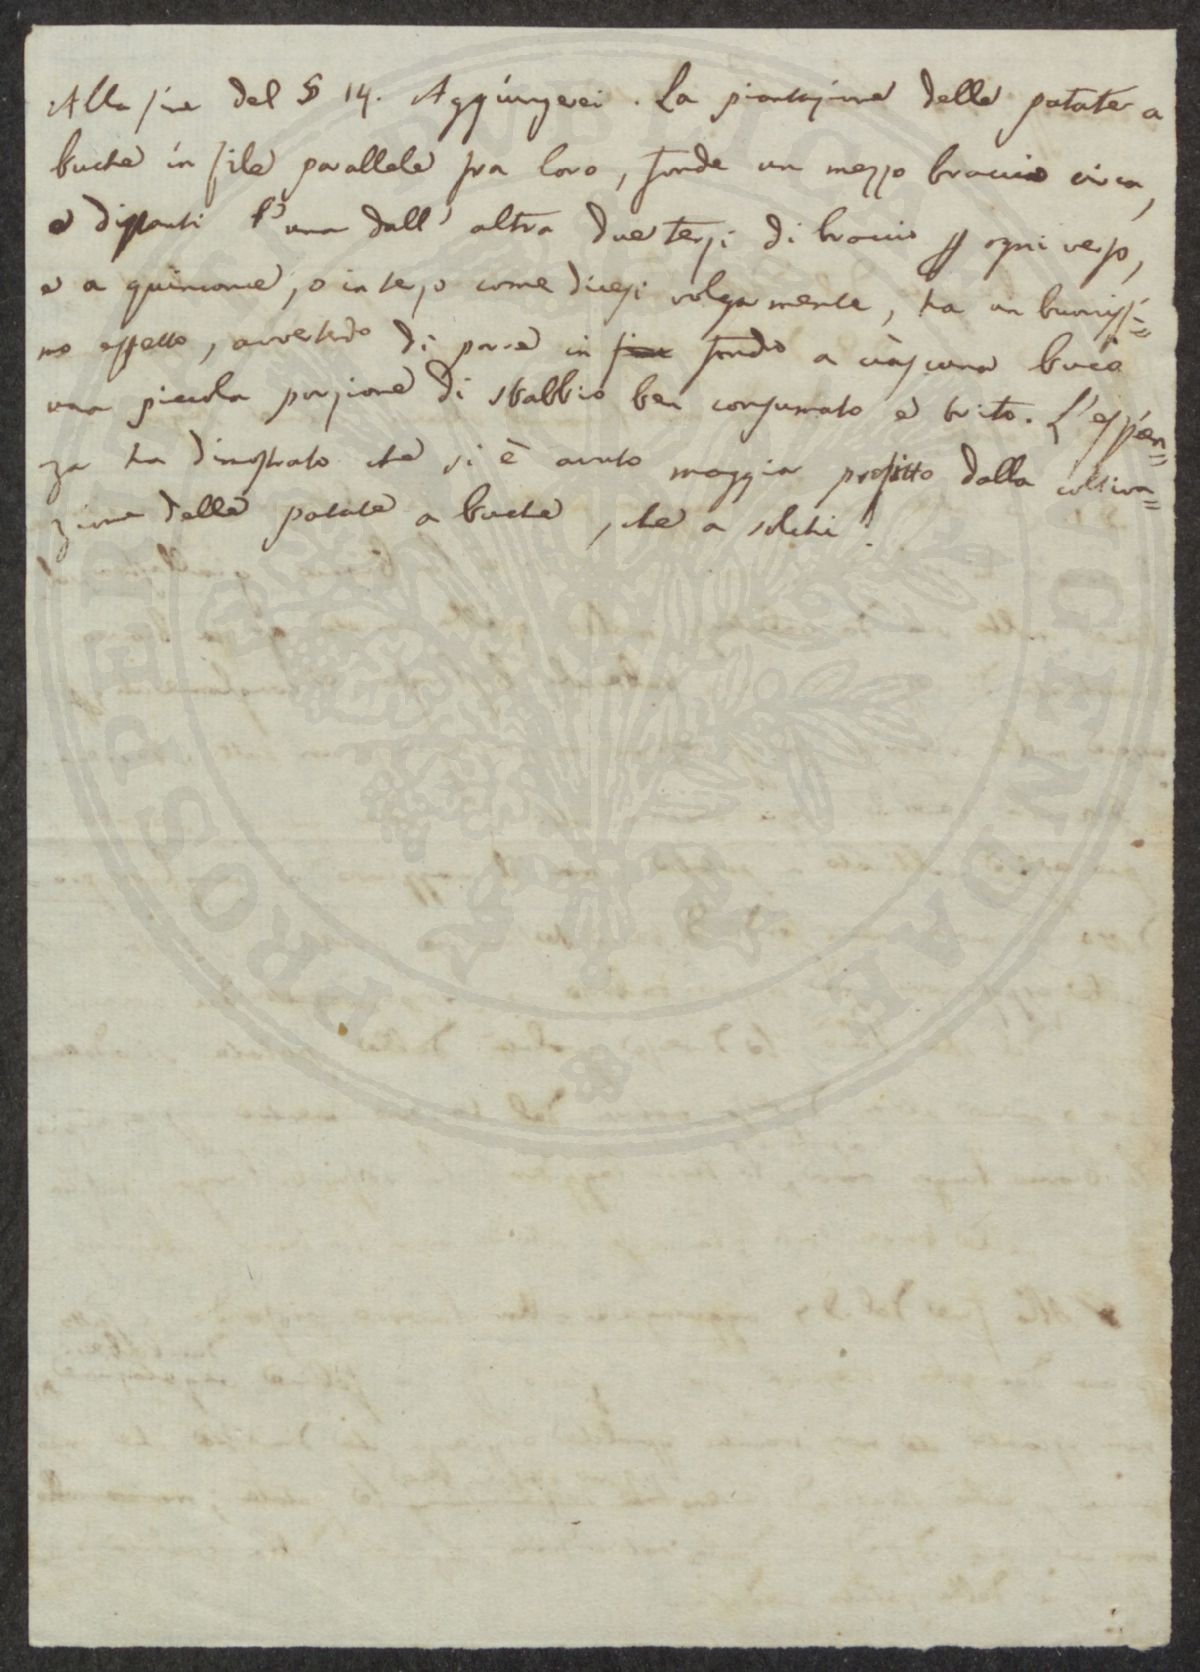 Alla fine del § 14. Aggiungerei. La piantazione delle patate a
buche in file parallele fra loro, fonde un mezzo braccio circa,
e distanti l'una dall'altra due terzi di braccio p ogni verso,
e a quinconce, o in terzo come dicesi volgarmente, ha un buonissi=
mo effetto, avvertendo di porre in fondo a ciascuna buca
una piccola porzione di stabbio ben consumato e trito. L'esperien=
za ha dimostrato che si è avuto maggior profitto dalla coltiva=
zione delle patate a buche, che a solchi.
PROSPERITATI PUBLICAE AUGENDAE